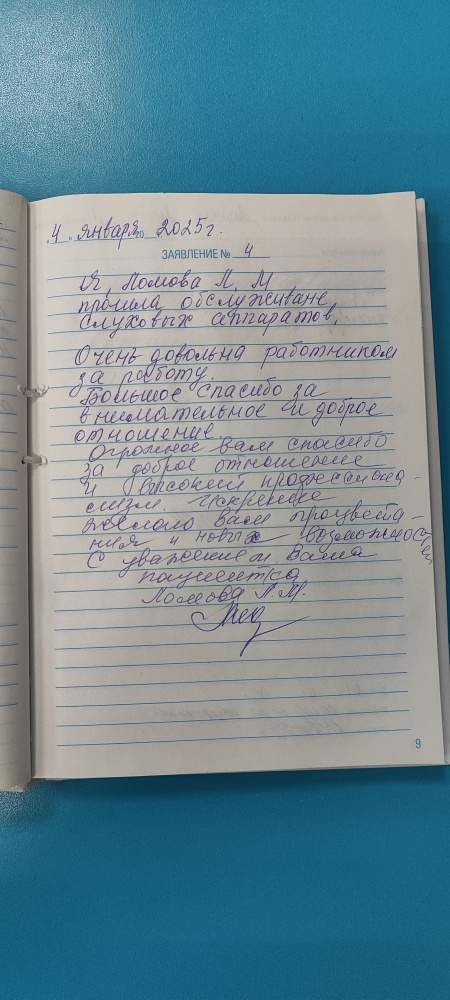 4 января 2025г.
ЗАЯВЛЕНИЕ № 4
Я, Ломова Л. М
прошла обслуживане
слуховых аппаратов.
Очень довольна работником
за работу.
Большое спасибо за
внимательное и доброе
отношение.
Огромное вам спасибо
за доброе отношение
и высокий профессиона-
лизм. Искренне
желаю вам процвета-
ния и новых возможностей
С уважением Ваша
пациентка
Ломова Л.М.
9